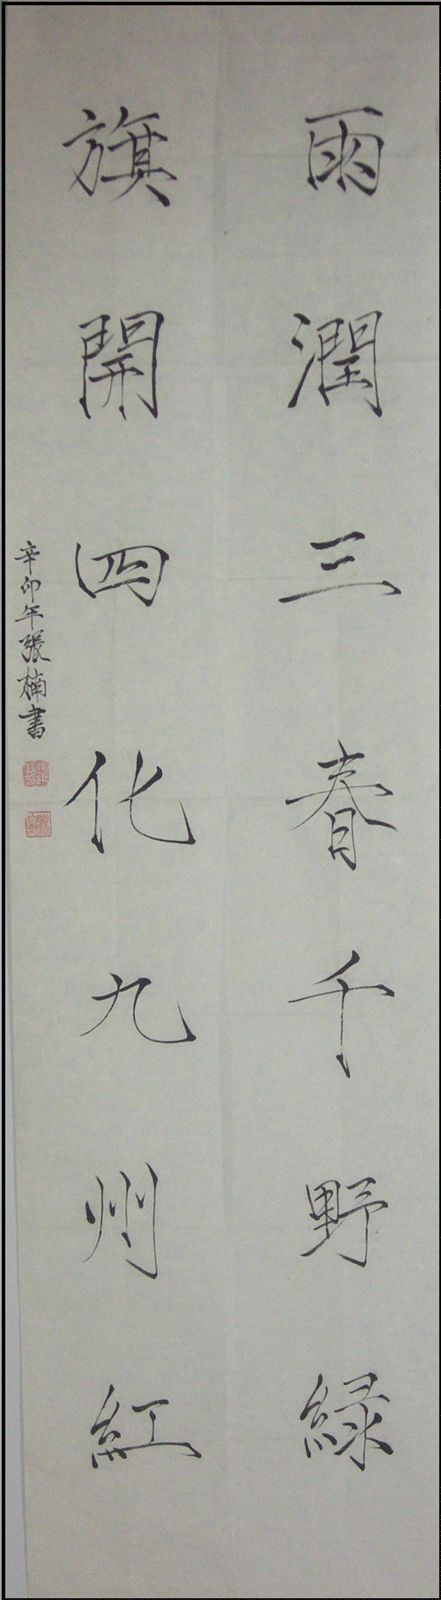 雨潤三春千野緑
旗開四化九州紅
辛卯年張楠書